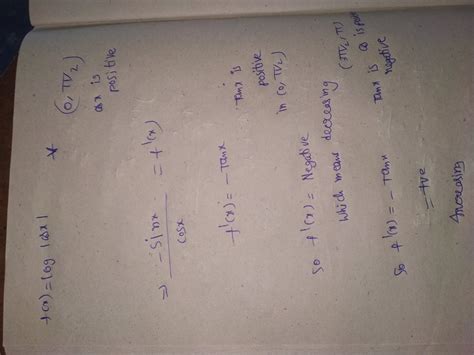 f(x) = log |cosx|
* (0, π/2)
cosx is
positive
⇒ -Sinx / cosx = f'(x)
f'(x) = - Tanx
Tanx is
positive
in (0, π/2)
So f'(x) = Negative
which means decreasing
(π/2, π)
Tanx is
negative
So f'(x) = - Tanx
= +ve
Increasing